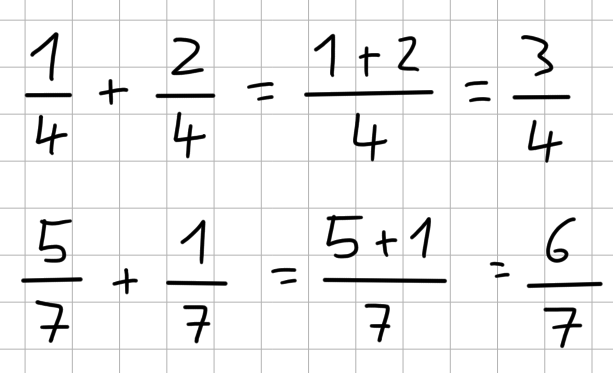 1/4 + 2/4 = (1+2)/4 = 3/4
5/7 + 1/7 = (5+1)/7 = 6/7